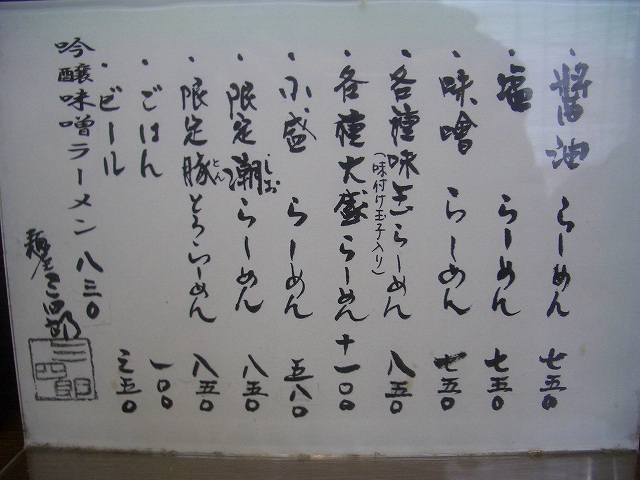 ・醤油らーめん 七五〇
・塩らーめん 七五〇
・味噌らーめん 七五〇
・各種味玉らーめん 八五〇
(味付け玉子入り)
・各種大盛らーめん 十一〇〇
・小盛らーめん 五八〇
・限定潮らーめん 八五〇
しお
・限定豚とろらーめん 八五〇
とん
・ごはん 一〇〇
・ビール 三五〇
吟醸味噌ラーメン 八三〇
麺屋三四郎
三四郎